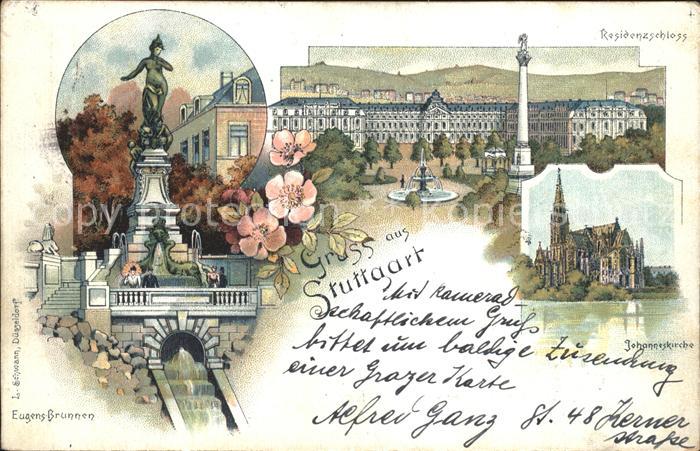 Residenzschloss
Gruss aus
Stuttgart
Johanneskirche
Eugens-Brunnen
L. Schwann, Düsseldorf
Mit kamerad
schaftlichem Gruß
bittet um baldige Zusendung
einer Grazer Karte
Alfred Ganz St. 48 Kerner
straße